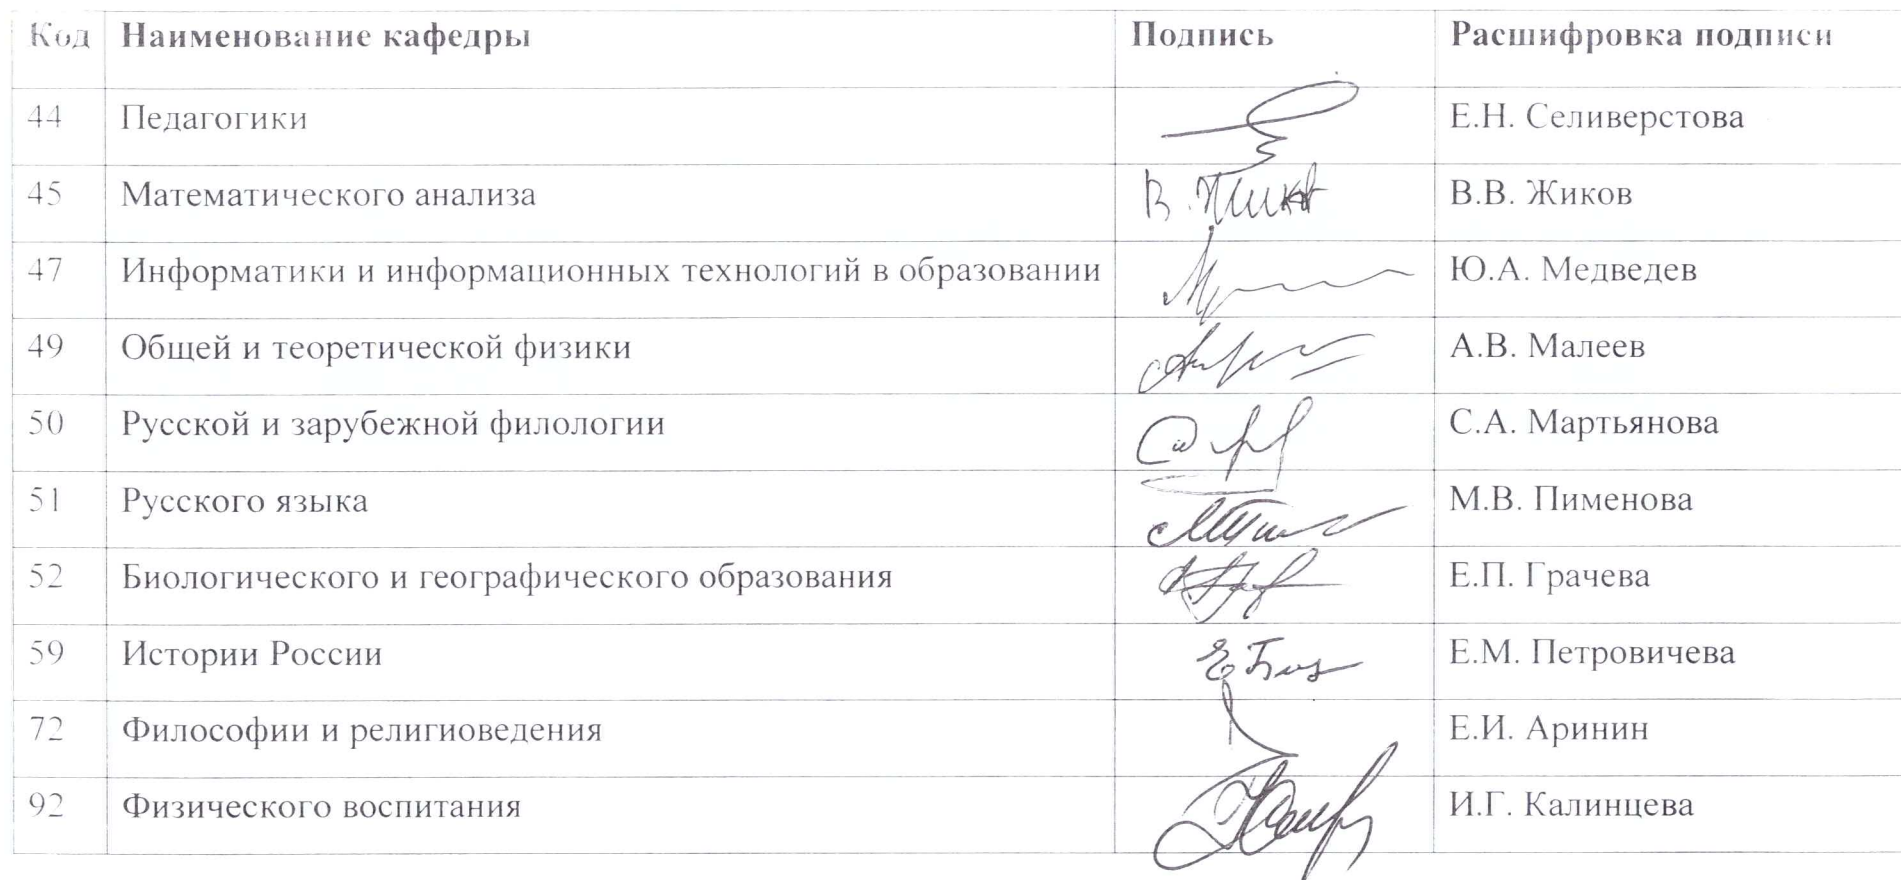 Код Наименование кафедры Подпись Расшифровка подписи
44 Педагогики Е.Н. Селиверстова
45 Математического анализа В. Жиков В.В. Жиков
47 Информатики и информационных технологий в образовании Ю.А. Медведев
49 Общей и теоретической физики А.В. Малеев
50 Русской и зарубежной филологии С.А. Мартьянова
51 Русского языка М.В. Пименова
52 Биологического и географического образования Е.П. Грачева
59 Истории России Е.М. Петровичева
72 Философии и религиоведения Е.И. Аринин
92 Физического воспитания И.Г. Калинцева